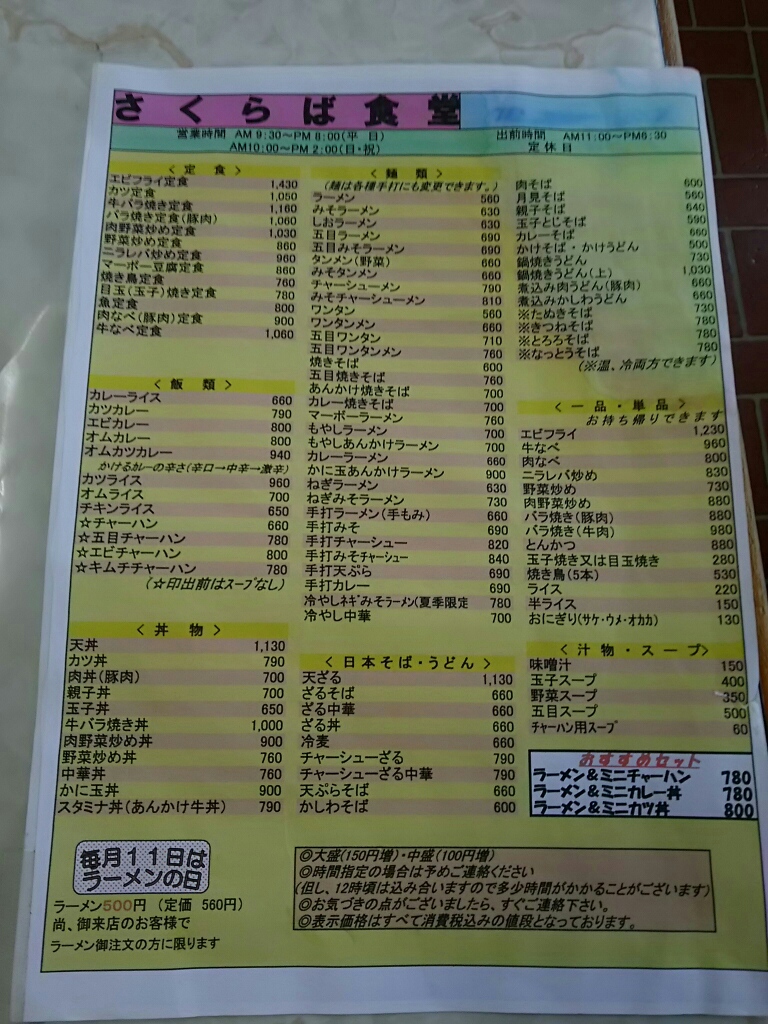 さくらば食堂
営業時間 AM9:30～PM8:00(平 日)
AM10:00～PM2:00(日・祝)
出前時間 AM11:00～PM6:30
定休日
＜ 定 食 ＞
エビフライ定食 1,430
カツ定食 1,050
牛バラ焼き定食 1,160
バラ焼き定食(豚肉) 1,060
肉野菜炒め定食 1,030
野菜炒め定食 860
ニラレバ炒め定食 960
マーボー豆腐定食 860
焼き鳥定食 760
目玉(玉子)焼き定食 780
魚定食 800
肉なべ(豚肉)定食 900
牛なべ定食 1,060
＜ 飯 類 ＞
カレーライス 660
カツカレー 790
エビカレー 800
オムカレー 800
オムカツカレー 940
かけるカレーの辛さ(辛口→中辛→激辛)
カツライス 960
オムライス 700
チキンライス 650
☆チャーハン 660
☆五目チャーハン 780
☆エビチャーハン 800
☆キムチチャーハン 780
(☆印出前はスープなし)
＜ 丼 物 ＞
天丼 1,130
カツ丼 790
肉丼(豚肉) 700
親子丼 700
玉子丼 650
牛バラ焼き丼 1,000
肉野菜炒め丼 900
野菜炒め丼 760
中華丼 760
かに玉丼 900
スタミナ丼(あんかけ牛丼) 790
毎月11日は
ラーメンの日
ラーメン500円 (定価 560円)
尚、御来店のお客様で
ラーメン御注文の方に限ります
＜ 麺 類 ＞
(麺は各種手打にも変更できます。)
ラーメン 560
みそラーメン 630
しおラーメン 630
五目ラーメン 690
五目みそラーメン 690
タンメン(野菜) 660
みそタンメン 690
チャーシューメン 790
みそチャーシューメン 810
ワンタン 560
ワンタンメン 660
五目ワンタン 710
五目ワンタンメン 760
焼きそば 600
五目焼きそば 760
あんかけ焼きそば 700
カレー焼きそば 700
マーボーラーメン 760
もやしラーメン 700
もやしあんかけラーメン 700
カレーラーメン 660
かに玉あんかけラーメン 900
ねぎラーメン 630
ねぎみそラーメン 730
手打ラーメン(手もみ) 660
手打みそ 690
手打チャーシュー 820
手打みそチャーシュー 840
手打天ぷら 690
手打カレー 690
冷やしネギみそラーメン(夏季限定 780
冷やし中華 700
＜ 日本そば・うどん ＞
天ざる 1,130
ざるそば 660
ざる中華 660
ざる丼 660
冷麦 660
チャーシューざる 790
チャーシューざる中華 790
天ぷらそば 660
かしわそば 600
肉そば 600
月見そば 560
親子そば 640
玉子とじそば 590
カレーそば 660
かけそば・かけうどん 500
鍋焼きうどん 730
鍋焼きうどん(上) 1,030
煮込み肉うどん(豚肉) 660
煮込みかしわうどん 660
※たぬきそば 730
※きつねそば 780
※とろろそば 780
※なっとうそば 780
(※温、冷両方できます)
＜ 一品・単品 ＞
お持ち帰りできます
エビフライ 1,230
牛なべ 960
肉なべ 800
ニラレバ炒め 830
野菜炒め 730
肉野菜炒め 880
バラ焼き(豚肉) 880
バラ焼き(牛肉) 980
とんかつ 880
玉子焼き又は目玉焼き 280
焼き鳥(5本) 530
ライス 220
半ライス 150
おにぎり(サケ・ウメ・オカカ) 130
＜ 汁物・スープ＞
味噌汁 150
玉子スープ 400
野菜スープ 350
五目スープ 500
チャーハン用スープ 60
おすすめセット
ラーメン＆ミニチャーハン 780
ラーメン＆ミニカレー丼 780
ラーメン＆ミニカツ丼 800
◎大盛(150円増)・中盛(100円増)
◎時間指定の場合は予めご連絡ください
(但し、12時頃は込み合いますので多少時間がかかることがございます)
◎お気づきの点がございましたら、すぐご連絡下さい。
◎表示価格はすべて消費税込みの値段となっております。